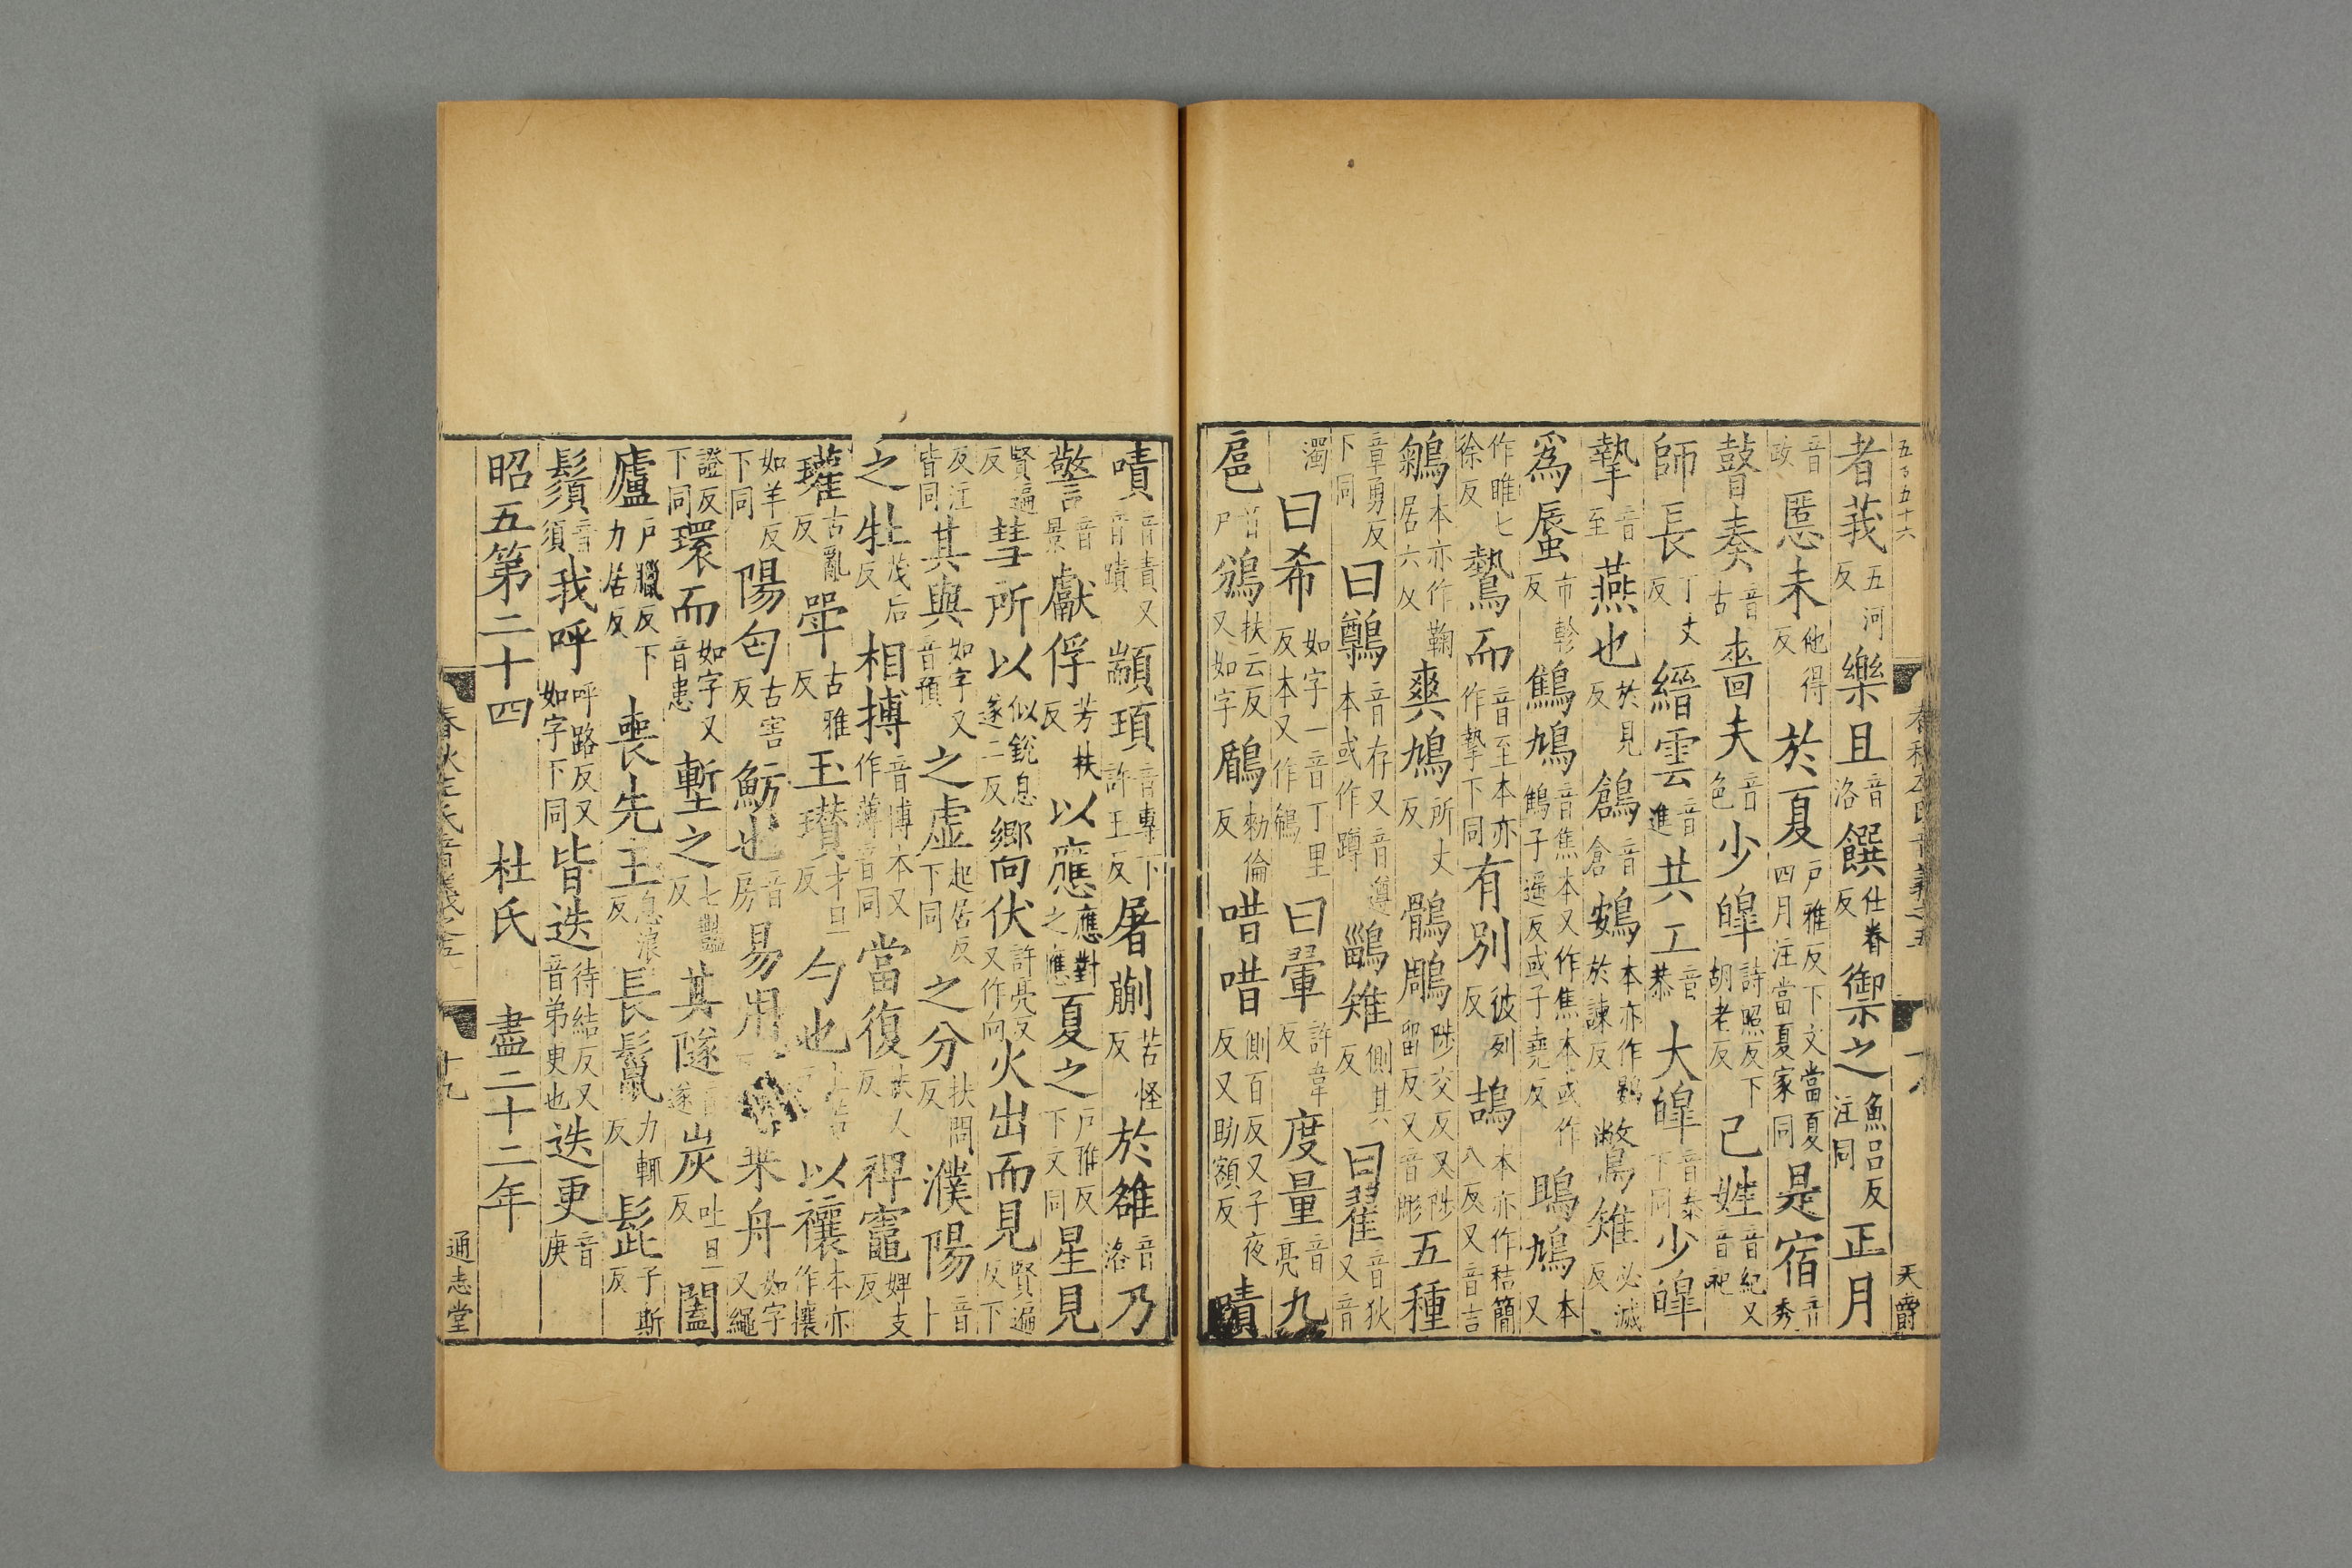 五百五十六 春秋左氏音義之五 十八 天爵
者莪五河反樂且音洛饌仕眷反御之魚呂反注同正月
音政慝未他得反於夏戶雅反下文當夏四月注當夏家同是宿音秀
瞽奏音古嗇夫音色少皞詩照反下胡老反己姓音紀又音祀
師長丁丈反縉雲音進共工音恭大皞音泰下同少皞
摯音至燕也於見反鶬音倉鴳本亦作鷃於諫反鷩雉必滅反
爲蜃市軫反鷦鳩音焦本又作焦本或作鷦子遥反或子堯反鴡鳩本又
作雎七徐反鷙而音至本亦作摯下同有別彼列反鴶本亦作秸簡八反又音吉
鵴本亦作鞠居六反爽鳩所丈反鶻鵰陟交反又陟留反又音彫五種
章勇反下同曰鷷音存又音遵本或作蹲鶅雉側其反曰翟音狄又音
濁曰希如字一音丁里反本又作鵗曰翬許韋反度量音亮九
扈音戶鳻扶云反又如字鳸勑倫反唶唶側百反又子夜反又助額反嘖
嘖音責又音蹟顓頊音專下許玉反屠蒯苦怪反於雒音洛乃
警音景獻俘芳扶反以應應對之應夏之戶雅反下文同星見
賢遍反彗所以似銳息遂二反鄉伏許亮反又作向火出而見賢遍反下
反注皆同其與如字又音預之虛起居反下同之分扶問反濮陽音卜
之牡茂后反相搏音博本又作薄音同當復扶又反裨竈婢支反
瓘古亂反斝古雅反玉瓚才旦反勺也上若反以禳本亦作攘
如羊反下同陽匄古害反魴也音房易用乗舟如字又繩
證反下同環而如字又音患塹之七豔反其隧音遂炭吐旦反闔
廬戶臘反下力居反喪先王息浪反長鬣力輒反髭子斯反
鬚音須我呼呼路反又如字下同皆迭待結反又音弟更也迭更音庚
昭五第二十四 杜氏 盡二十二年
春秋左氏音義之五 十九 通志堂